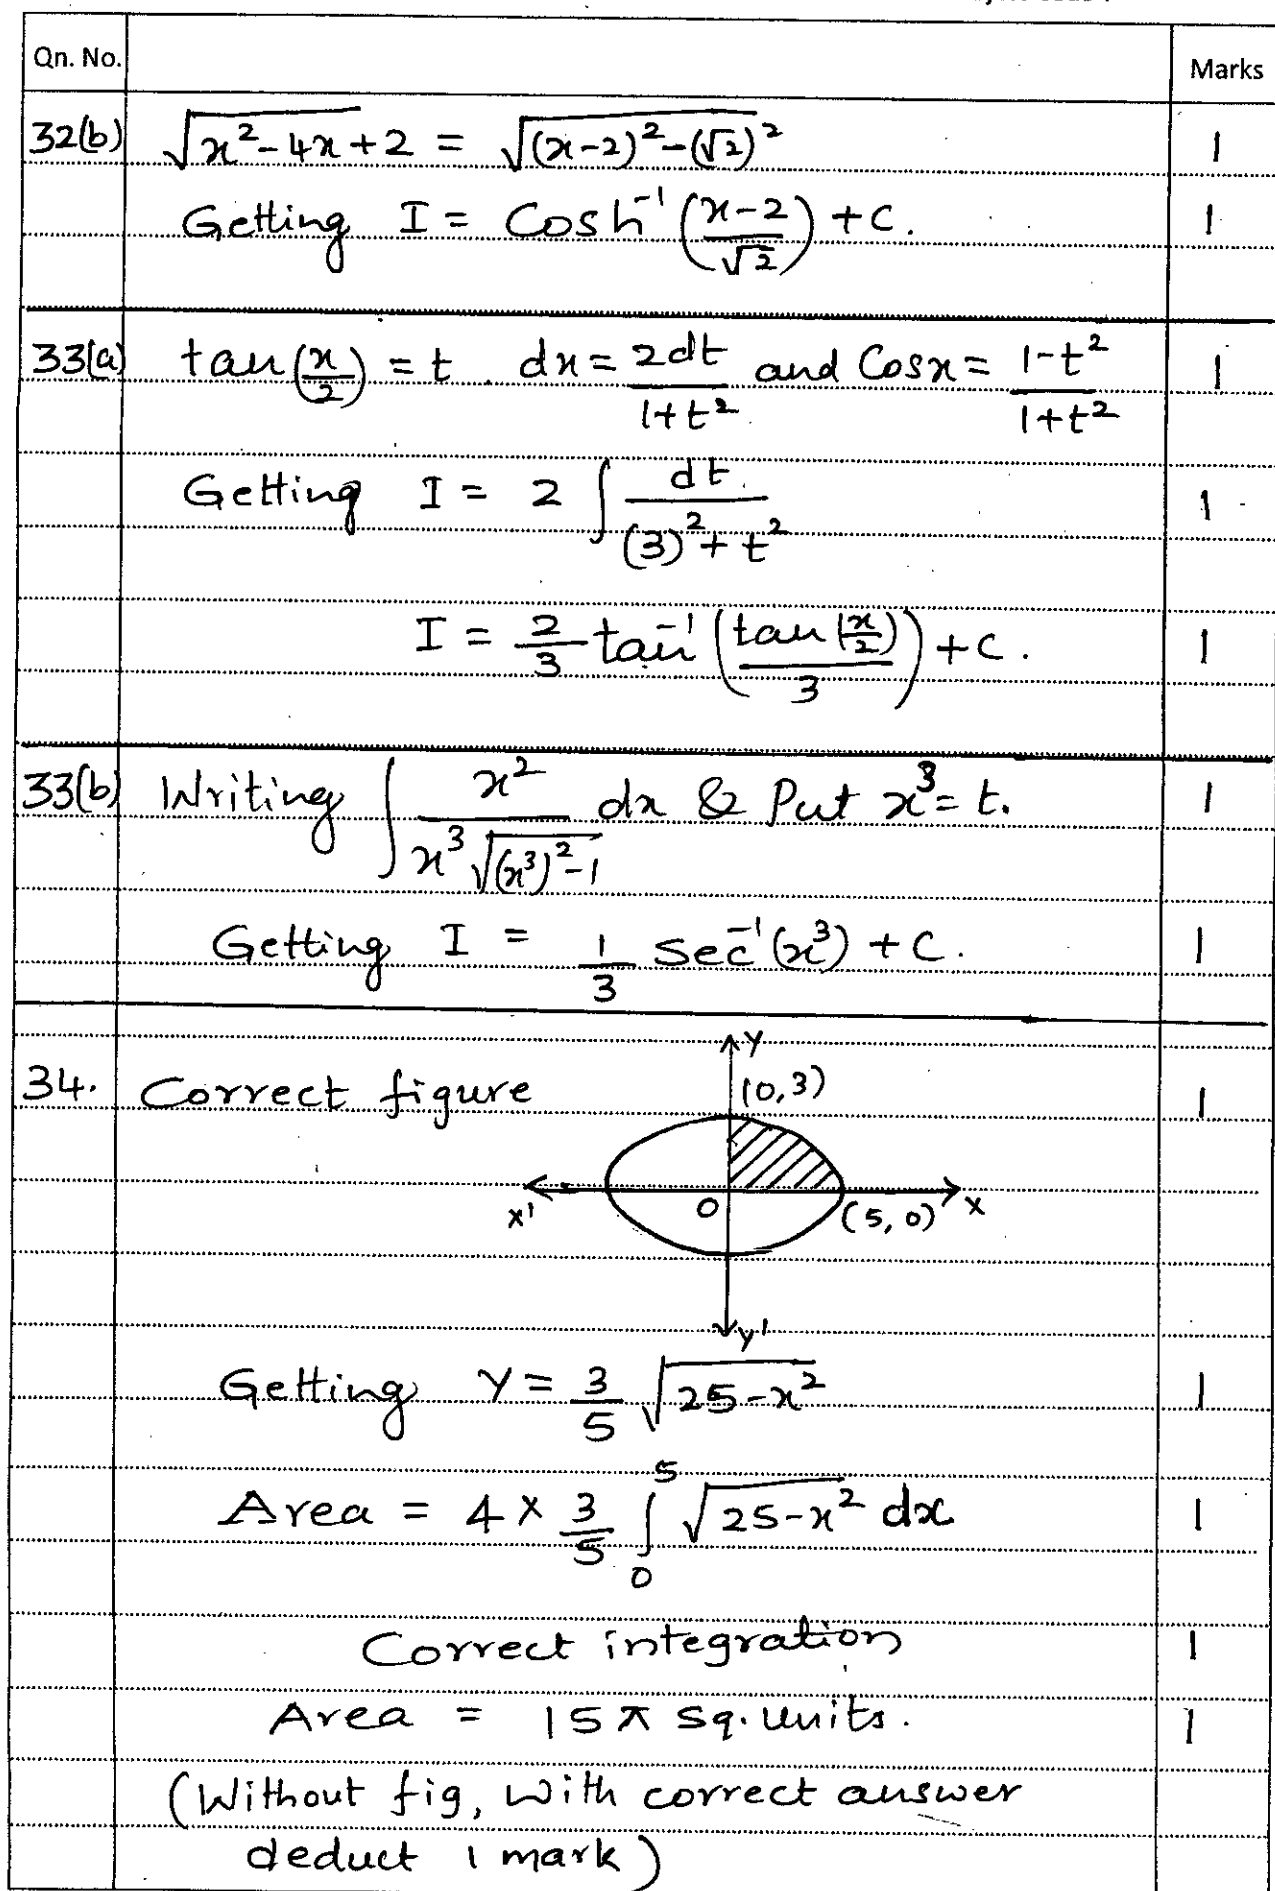 Qn. No. Marks
32(b) √(x²-4x+2) = √((x-2)²-(√2)²) 1
Getting I = Cosh⁻¹((x-2)/√2) + C. 1
33(a) tan(x/2) = t. dx = 2dt/(1+t²) and Cosx = (1-t²)/(1+t²) 1
Getting I = 2 ∫ dt/((3)²+t²) 1
I = 2/3 tan⁻¹(tan(x/2)/3) + C. 1
33(b) Writing ∫ x²/(x³√((x³)²-1)) dx & Put x³ = t. 1
Getting I = 1/3 Sec⁻¹(x³) + C. 1
34. Correct figure 1
Y
(0,3)
X' O (5,0) X
Y'
Getting Y = 3/5 √(25-x²) 1
Area = 4 × 3/5 ∫₀⁵ √(25-x²) dx 1
Correct integration 1
Area = 15π Sq. Units. 1
(Without fig, With correct answer
deduct 1 mark)